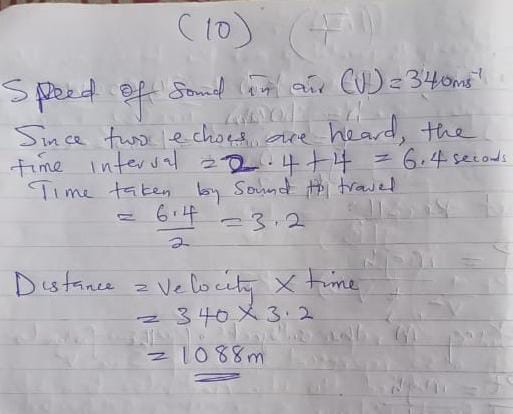 (10)
Speed of Sound in air (V) = 340ms⁻¹
Since two echoes are heard, the
time interval = 2.4 + 4 = 6.4 seconds
Time taken by Sound to travel
= 6.4/2 = 3.2
Distance = Velocity × time
= 340 × 3.2
= 1088m